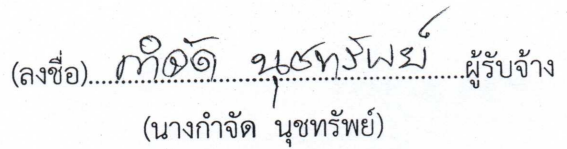 (ลงชื่อ)....กำจัด นุชทรัพย์....ผู้รับจ้าง
(นางกำจัด นุชทรัพย์)